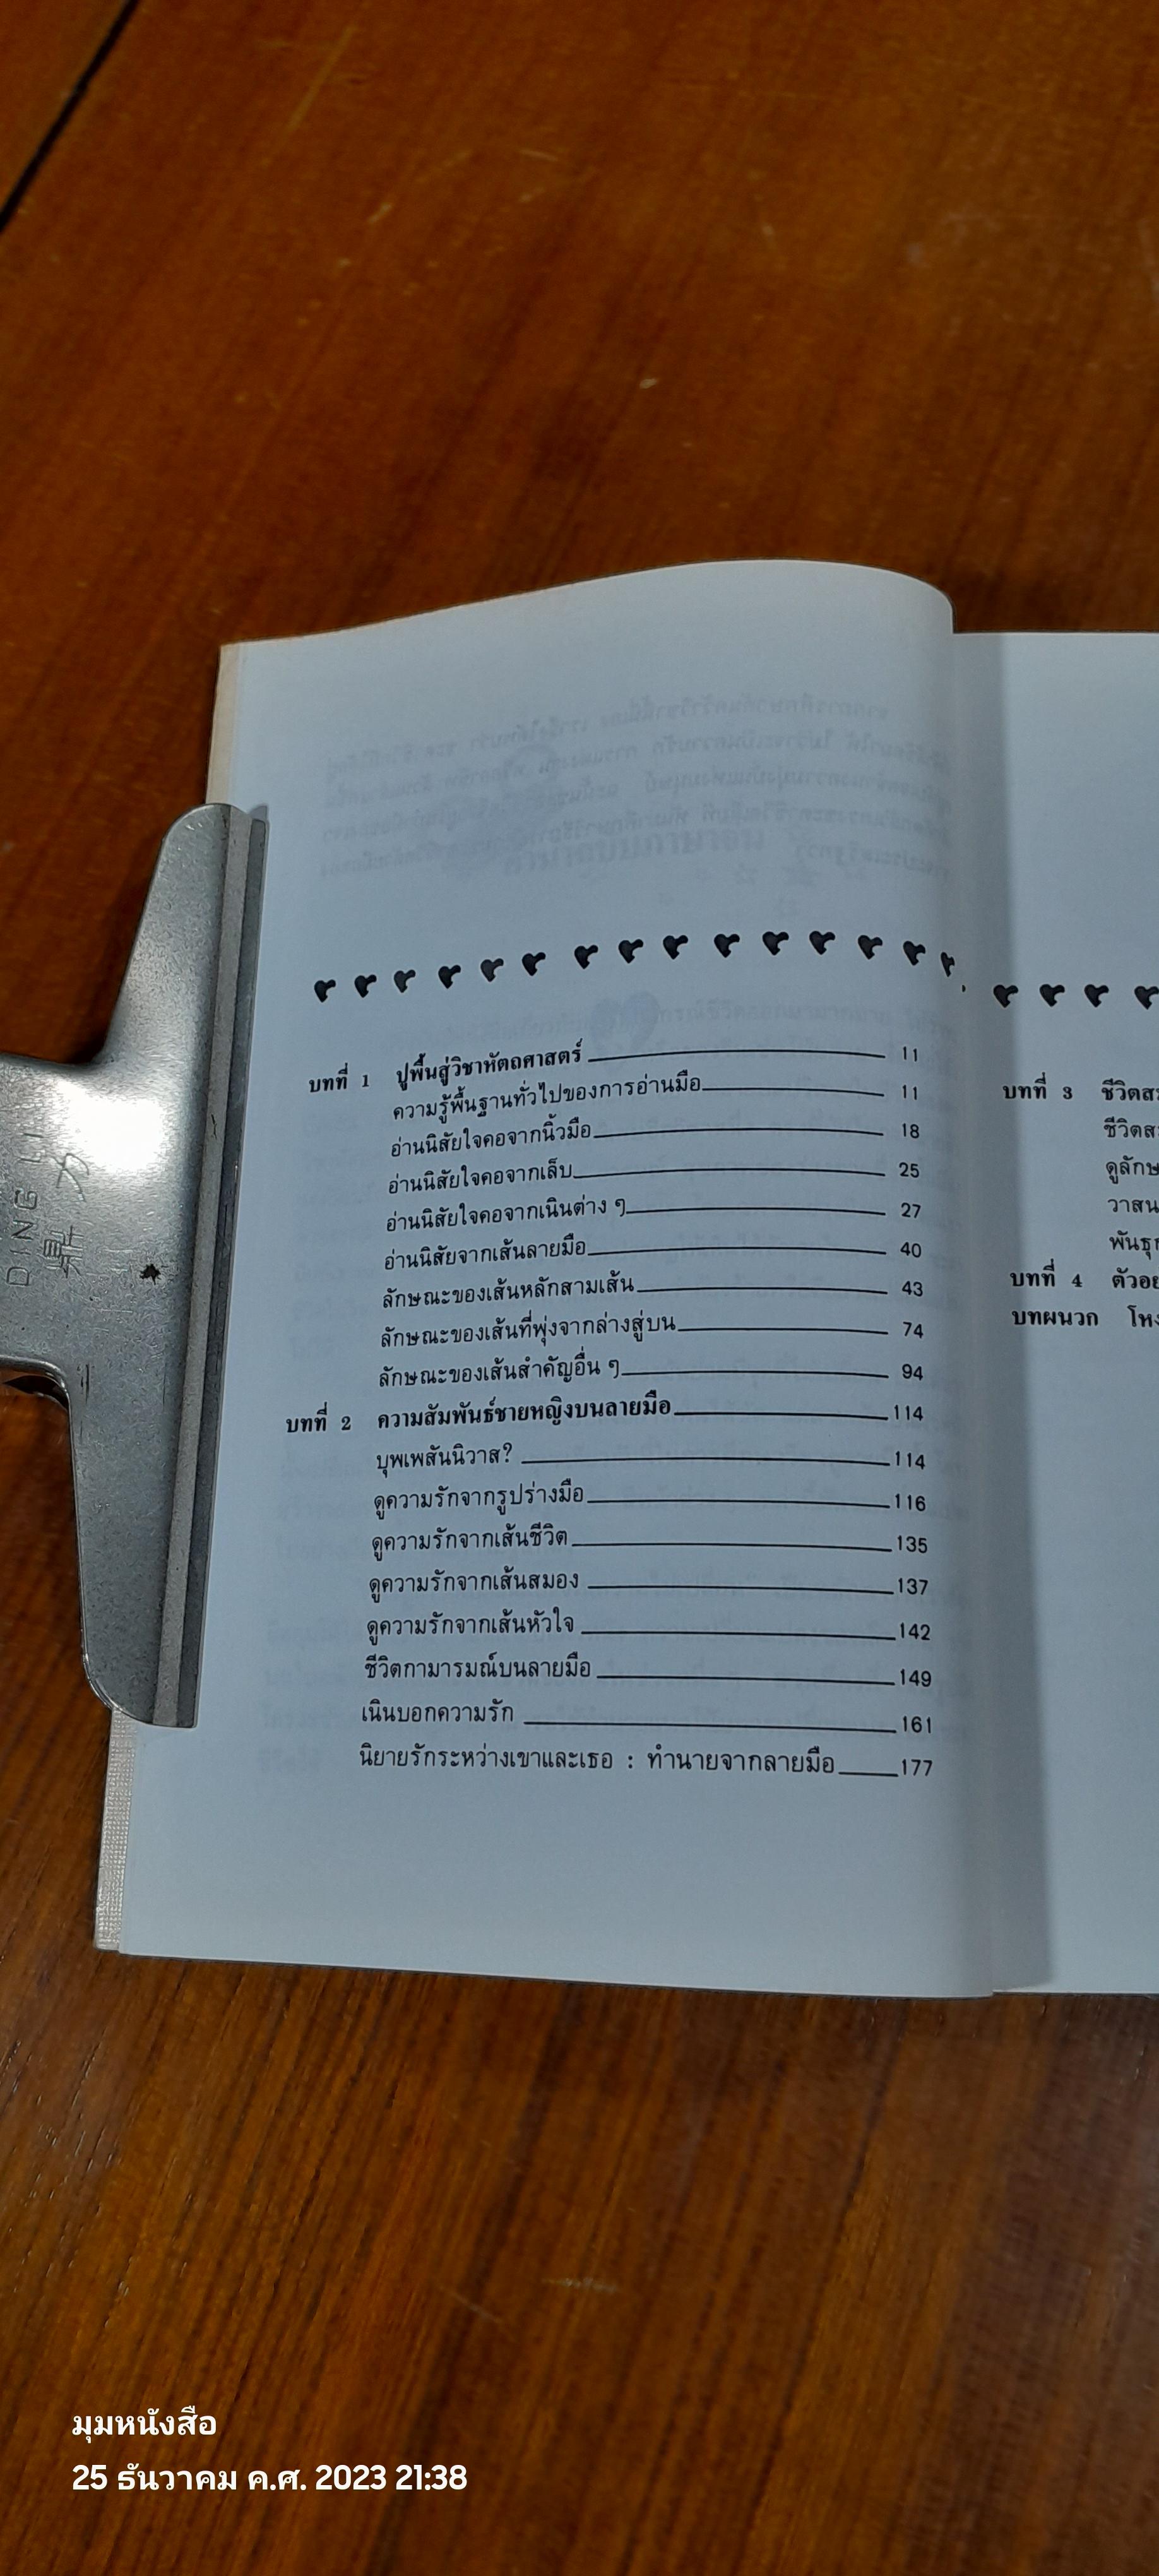 บทที่ 1 ปูพื้นสู่วิชาหัตถศาสตร์ 11
ความรู้พื้นฐานทั่วไปของการอ่านมือ 11
อ่านนิสัยใจคอจากนิ้วมือ 18
อ่านนิสัยใจคอจากเล็บ 25
อ่านนิสัยใจคอจากเนินต่าง ๆ 27
อ่านนิสัยจากเส้นลายมือ 40
ลักษณะของเส้นหลักสามเส้น 43
ลักษณะของเส้นที่พุ่งจากล่างสู่บน 74
ลักษณะของเส้นสำคัญอื่น ๆ 94
บทที่ 2 ความสัมพันธ์ชายหญิงบนลายมือ 114
บุพเพสันนิวาส? 114
ดูความรักจากรูปร่างมือ 116
ดูความรักจากเส้นชีวิต 135
ดูความรักจากเส้นสมอง 137
ดูความรักจากเส้นหัวใจ 142
ชีวิตกามารมณ์บนลายมือ 149
เนินบอกความรัก 161
นิยายรักระหว่างเขาและเธอ : ทำนายจากลายมือ 177
บทที่ 3 ชีวิตส
ชีวิตส
ดูลักษ
วาสน
พันธุ
บทที่ 4 ตัวอย
บทผนวก โหง
DING LI
鼎力
มุมหนังสือ
25 ธันวาคม ค.ศ. 2023 21:38